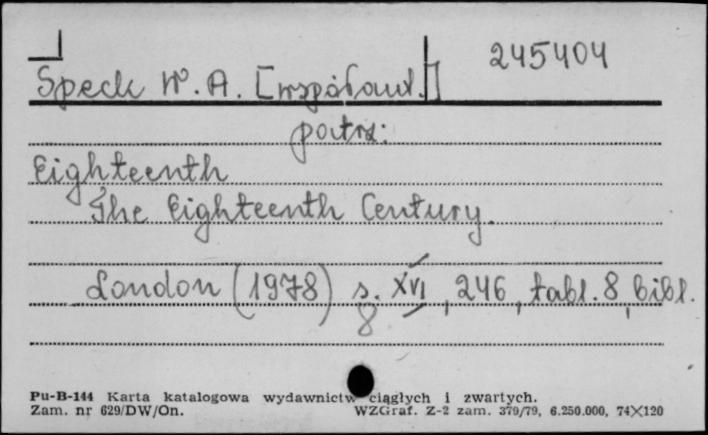 245404
Speck W. A. [współaut.]
patrz:
Eighteenth
The Eighteenth Century.
London (1978) s. XVI, 246, tabl. 8, bibl.
8
Pu-B-144 Karta katalogowa wydawnictw ciągłych i zwartych.
Zam. nr 629/DW/On. WZGraf. Z-2 zam. 379/79, 6.250.000, 74×120